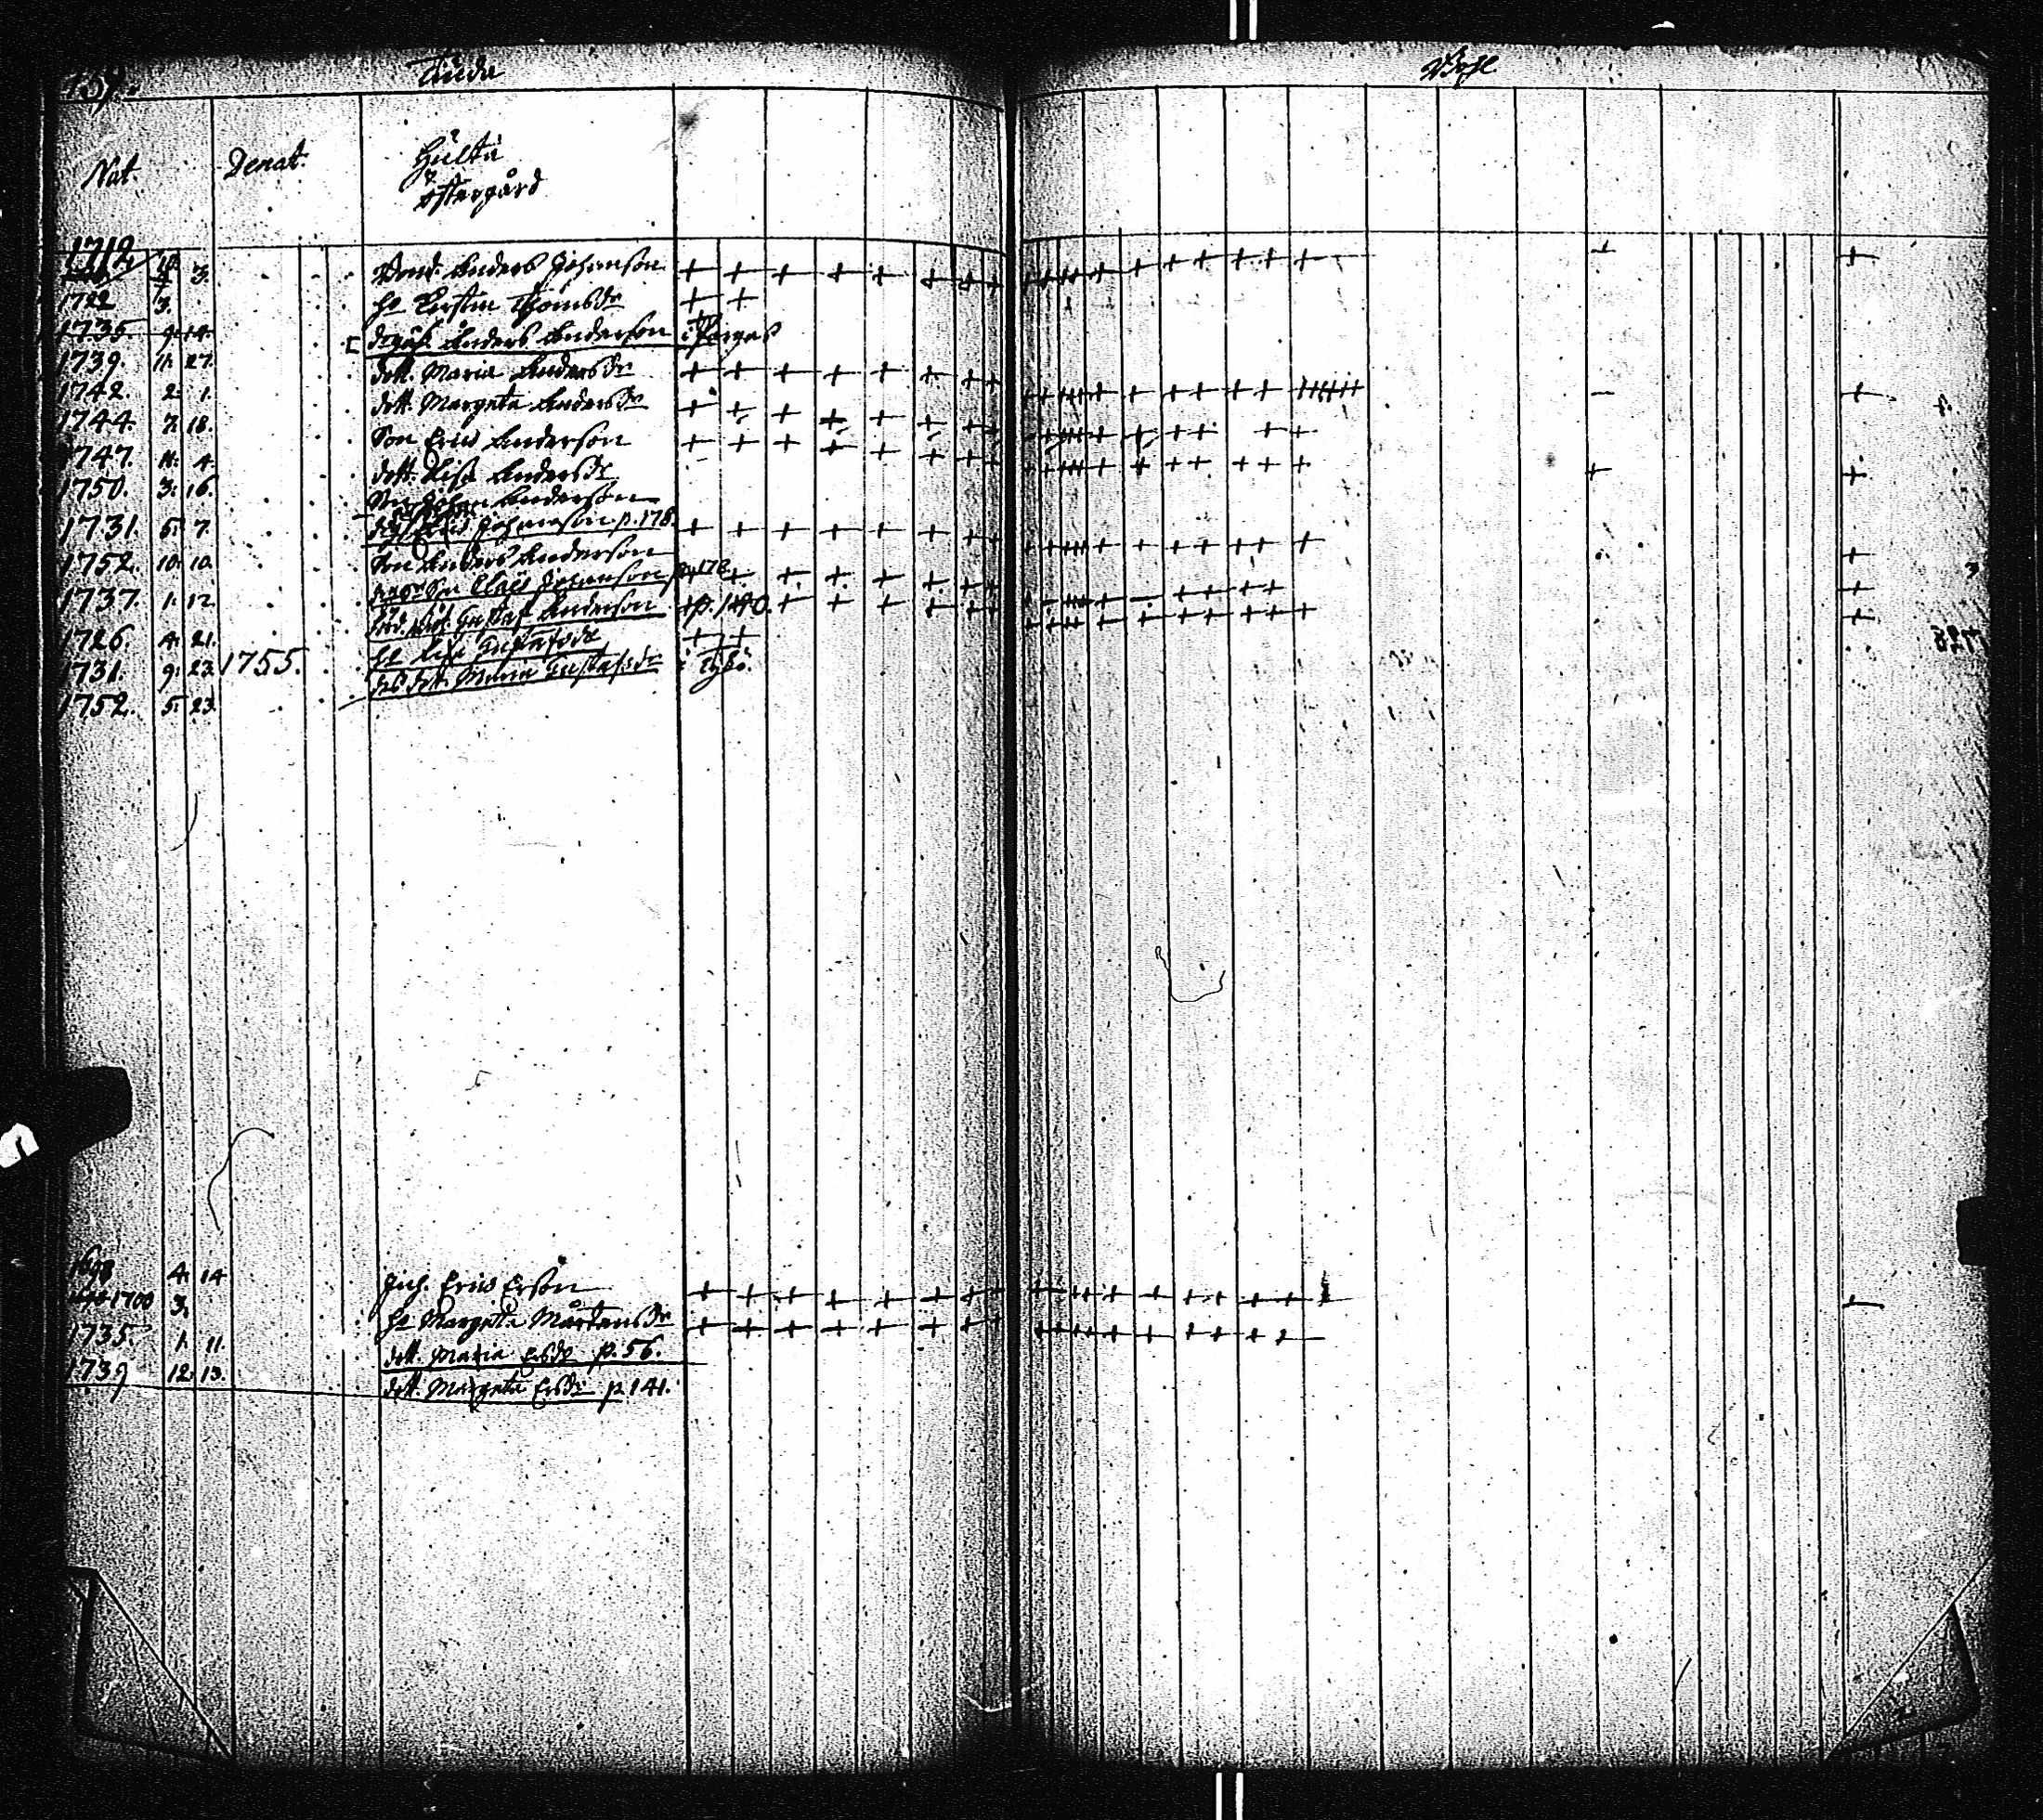 139.
Nat. Denat.
Östergård
1712. 3.
Bond. Anders Johanson
1722 3.
h. Kirstin Thomsdr
1735. 9. 14.
Anders Anderson i Pargas
1739. 11. 27.
dott. Maria Andersdr
1742. 2. 1.
dott. Margeta Andersdr
1744. 7. 18.
Son Eric Anderson
1747. 11. 4.
dott. Lisa Andersdr
1750. 3. 16.
Son Johan Anderson
1731. 5. 7.
Johanson p. 178.
1752. 10. 10.
Son Anders Anderson
1737. 1. 12.
Son Claes Johanson p. 178
1726. 4. 21.
Gustaf Anderson p. 140.
1731. 9. 23. 1755.
h. Lisa Gustafsdr
1752. 5. 23.
dott. Maria Gustafsdr i
1698 4. 14
Inh. Eric Erson
1700 3.
h. Margeta Mårtensdr
1735. 1. 11.
dott. Maria Ersdr p. 56.
1739 12. 13.
dott. Margeta Ersdr p. 141.